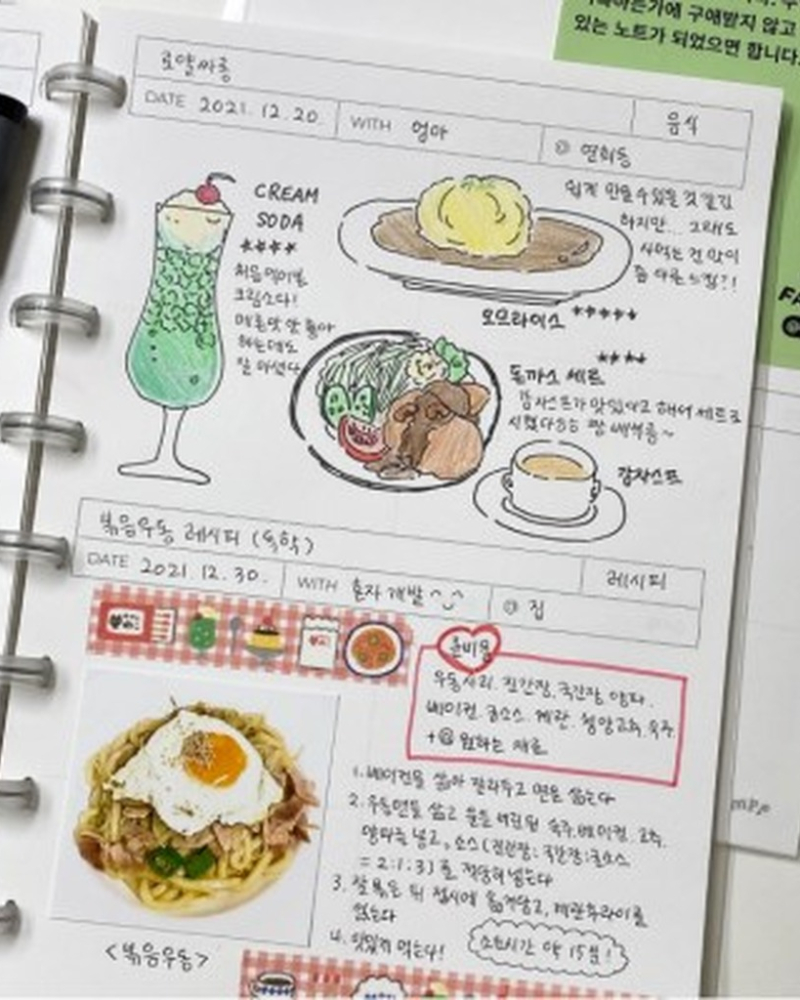 에 구애받지 않고
있는 노트가 되었으면 합니다.
로얄싸롱
음식
DATE 2021. 12. 20.
WITH 엄마
@ 연희동
CREAM
SODA
****
처음 먹어본
크림소다!
메론맛 안 좋아
하는데도
맛있었다
쉽게 만들 수 있을 것 같긴
하지만... 그래도
사먹는 건 맛이
좀 다른 느낌?!
오므라이스 *****
****
돈까스 세트
감자스프가 맛있다고 해서 세트로
시켰다
감자스프
볶음우동 레시피 (뚝딱)
레시피
DATE 2021. 12. 30.
WITH 혼자 개발 ^‿^
@ 집
준비물
우동사리. 진간장. 국간장. 양파.
베이컨. 굴소스. 계란. 청양고추. 숙주.
+@ 원하는 재료
1. 베이컨을 삶아 잘라두고 면을 삶는다
2. 우동면을 삶고 물을 버린 뒤 숙주, 베이컨, 고추,
양파를 넣고, 소스 (진간장:국간장:굴소스
= 2:1:3)를 적당히 넣는다
3. 잘 볶은 뒤 접시에 옮겨담고, 계란후라이를
얹는다
4. 맛있게 먹는다!
소요시간 약 15분!
<볶음우동>